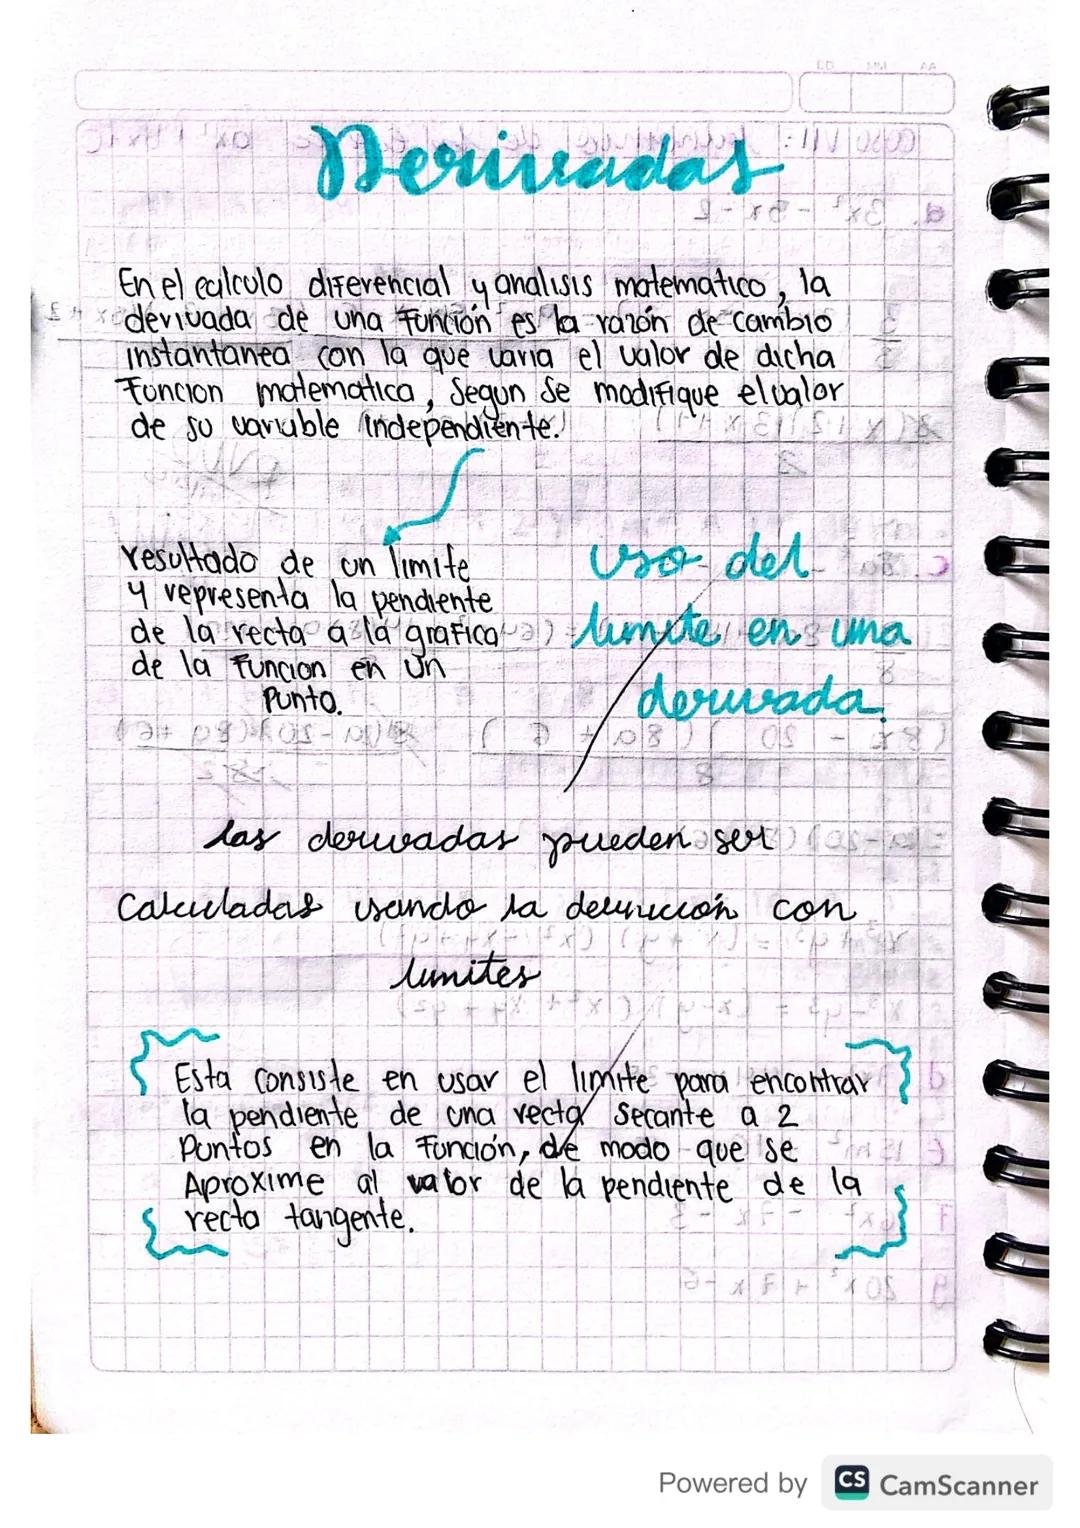 DD MM AA
Derivadas
En el calculo diferencial y analisis matematico, la
derivada de una función es la razón de cambio
instantanea con la que varia el valor de dicha
Funcion matematica, Segun Se modifique el valor
de su variable independiente.
resultado de un limite
y representa la pendiente
de la recta a la grafica
de la Funcion en un
Punto.
uso del
limite en una
derivada.
las derivadas pueden ser
Calculadas usando la definición con
limites
Esta consiste en usar el limite para encontrar
la pendiente de una recta Secante a 2
Puntos en la Función, de modo que se
Aproxime al valor de la pendiente de la
recta tangente.
Powered by CS CamScanner